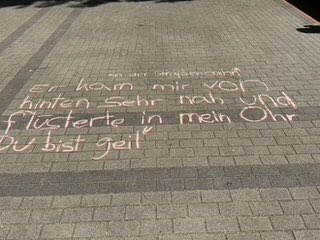 "an der Straßenbahn"
Er kam mir von
hinten sehr nah und
flüsterte in mein Ohr
"Du bist geil"